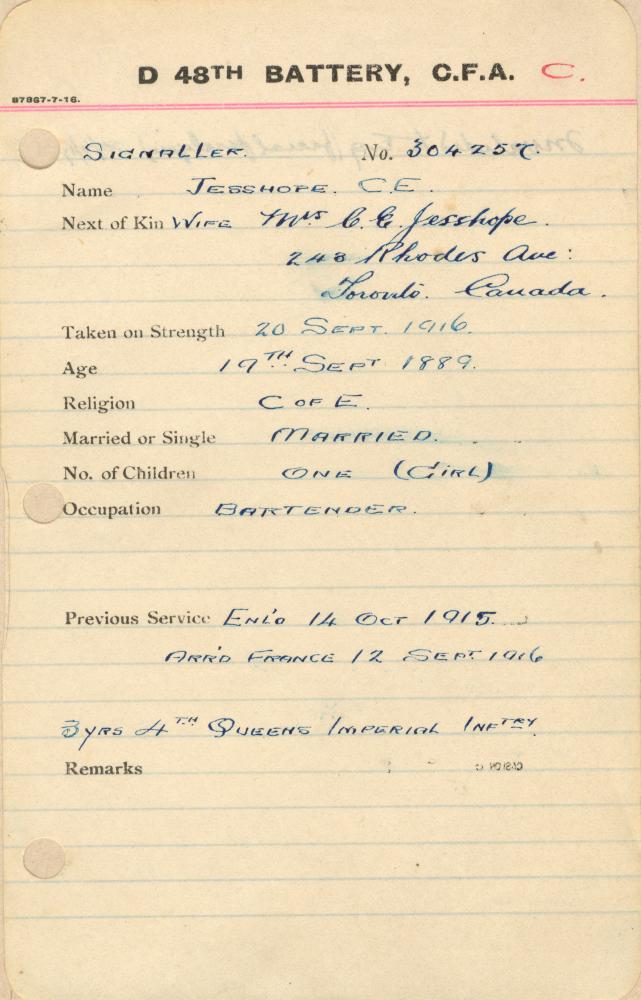 D 48TH BATTERY, C.F.A. C.
87867-7-16.
SIGNALLER. No. 304257.
Name JESSHOPE. C.E.
Next of Kin WIFE Mrs C. E. Jesshope.
243 Rhodes Ave:
Toronto. Canada.
Taken on Strength 20 SEPT. 1916.
Age 19TH SEPT 1889.
Religion C OF E.
Married or Single MARRIED.
No. of Children ONE (GIRL)
Occupation BARTENDER.
Previous Service ENL'D 14 OCT 1915.
ARR'D FRANCE 12 SEPT 1916
3 YRS 4TH QUEENS IMPERIAL INFTRY.
Remarks